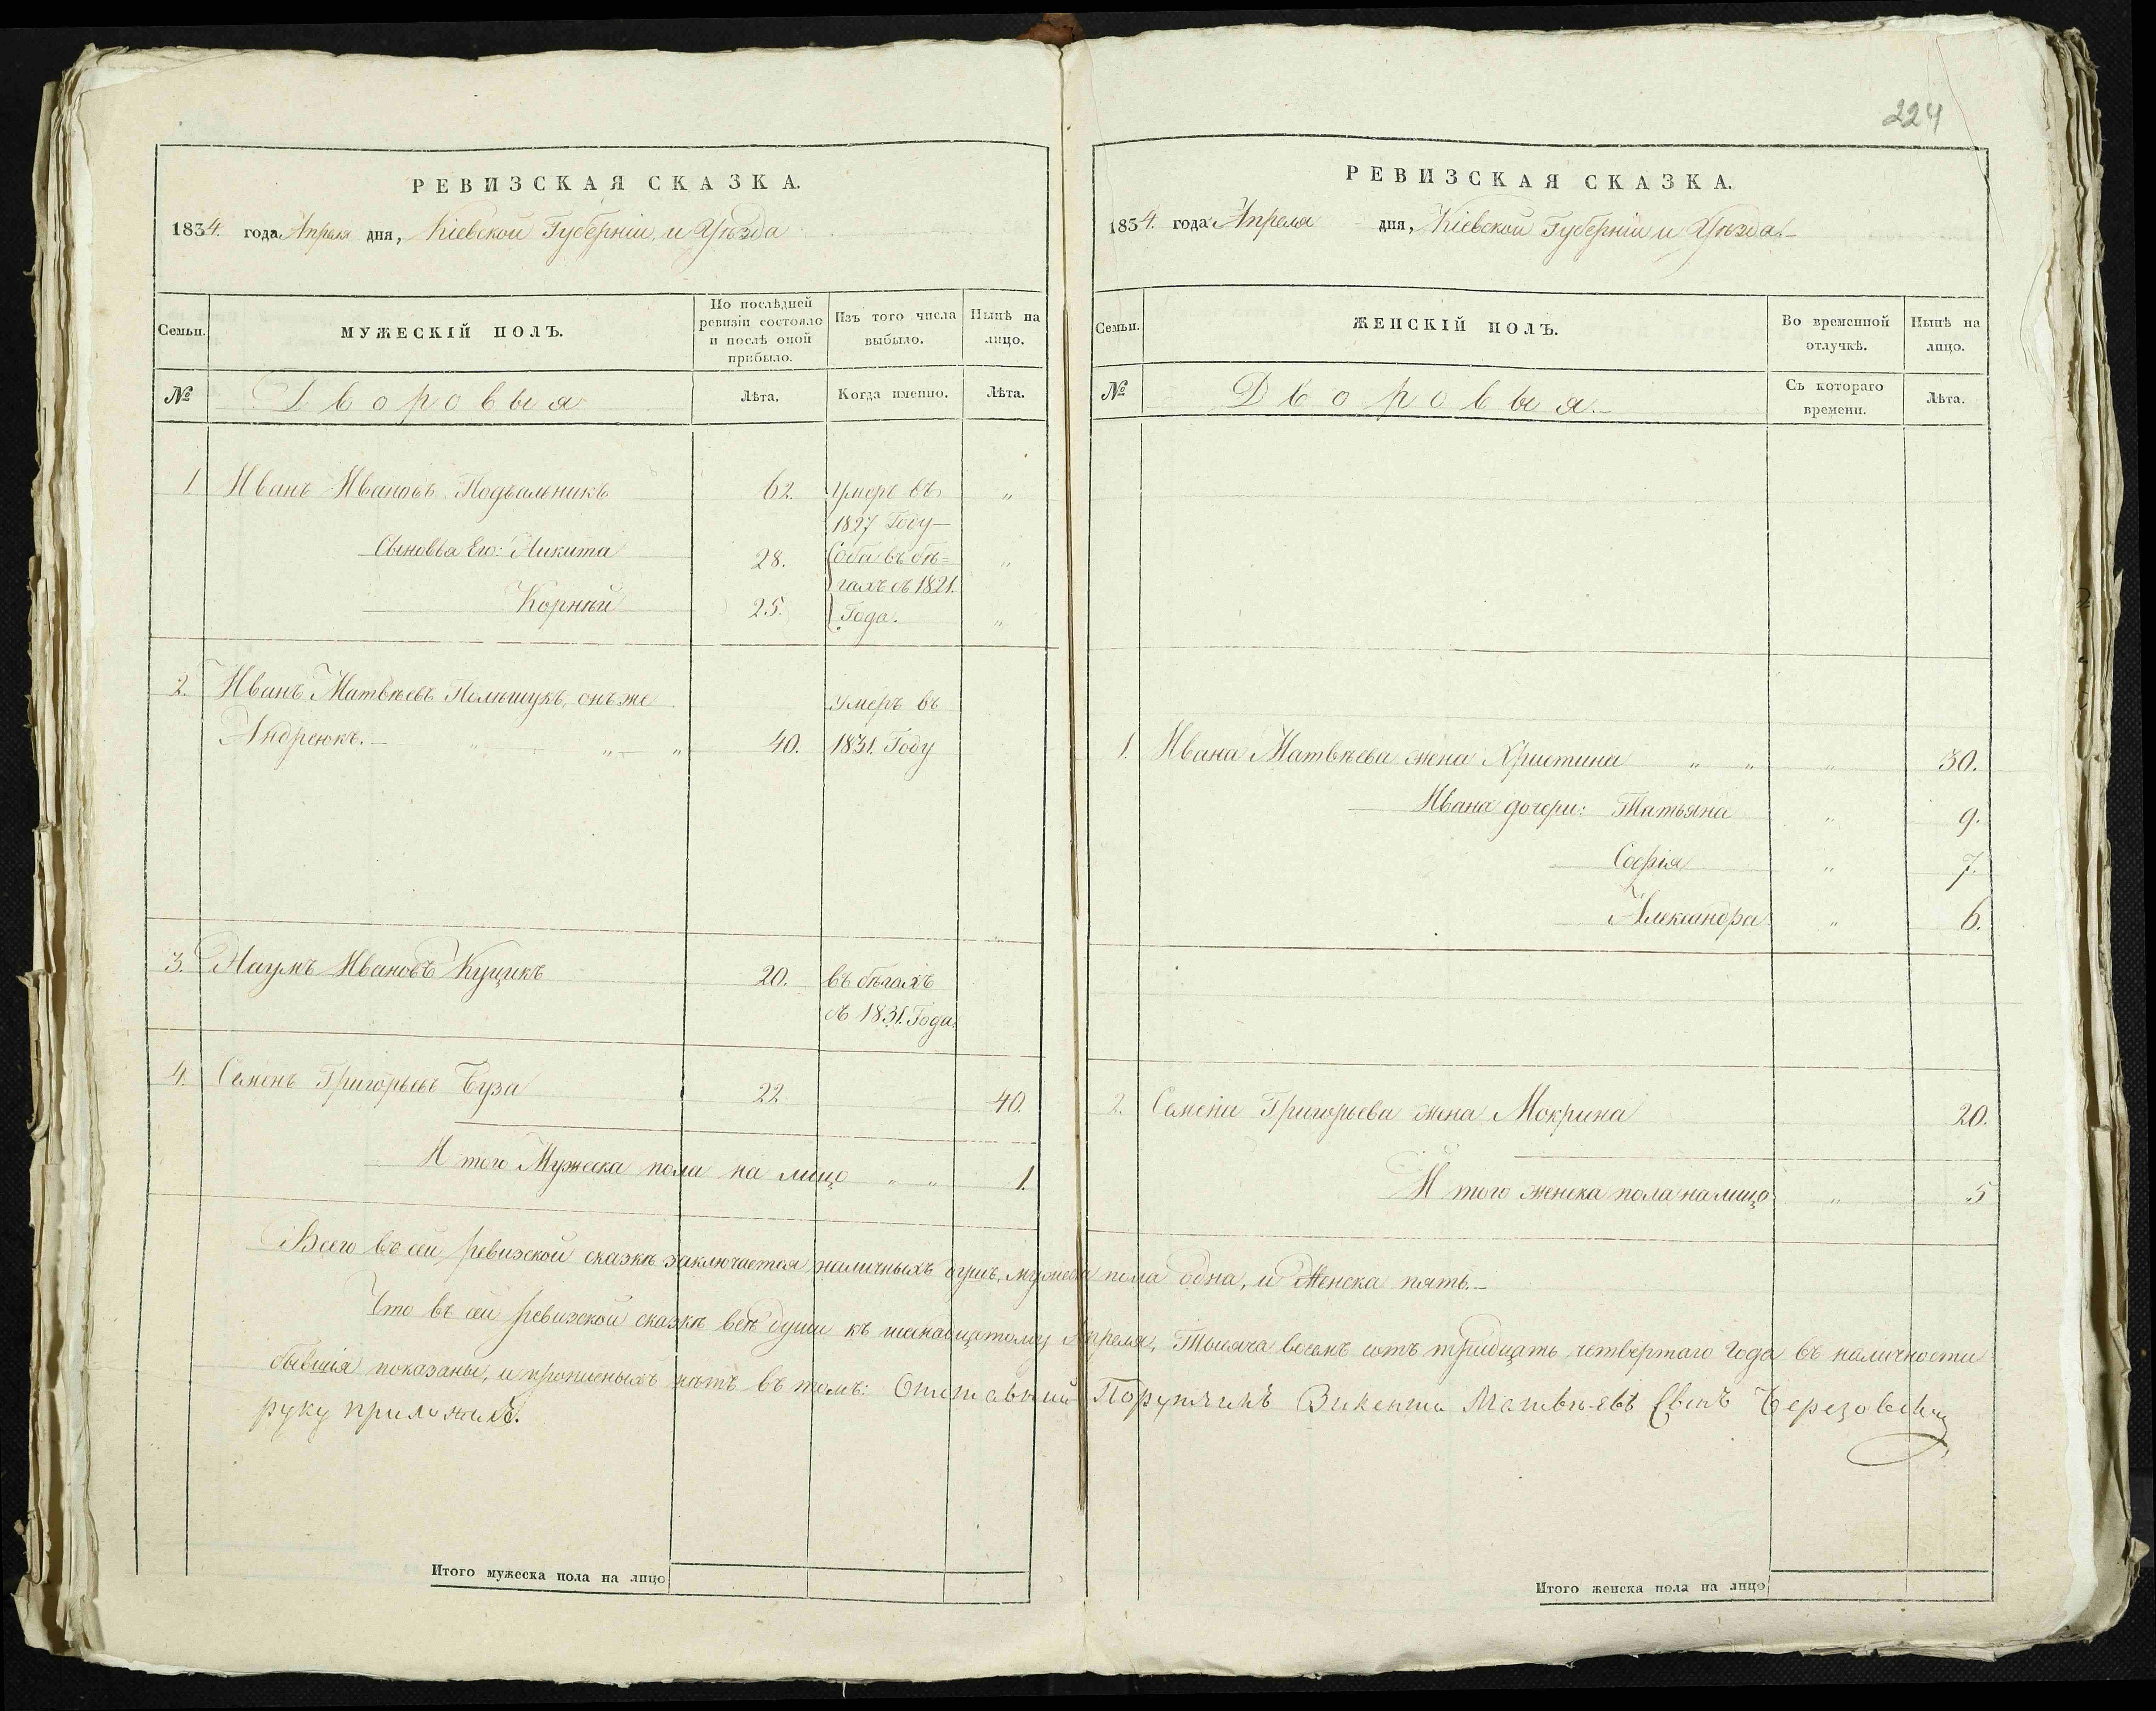 224
РЕВИЗСКАЯ СКАЗКА.
1834. года Апреля дня, Кіевской Губерніи, и Уѣзда
Семьи.
МУЖЕСКІЙ ПОЛЪ.
По послѣдней ревизіи состояло и послѣ оной прибыло.
Изъ того числа выбыло.
Нынѣ на лицо.
№
Дворовыя
Лѣта.
Когда именно.
Лѣта.
1 Иванъ Ивановъ 62. Умеръ въ 1827 Году „
Сыновья Его: Никита 28. Оба въ бѣ= „
Корнѣй 25. гахъ съ 1821. Года. „
2. Иванъ Матвѣевъ Полѣщукъ, онъ же
Андреюкъ. „ „ „ 40. Умеръ въ 1831. Году
3. Наумъ Ивановъ Куцикъ 20. въ бѣгахъ
съ 1831. Года.
4. Семенъ Григорьевъ Буза 22 40.
И того Мужеска пола на лицо „ „ 1.
РЕВИЗСКАЯ СКАЗКА.
1834. года Апреля дня, Кіевской Губерніи и Уѣзда.
Семьи.
ЖЕНСКІЙ ПОЛЪ.
Во временной отлучкѣ.
Нынѣ на лицо.
№
Дворовыя.
Съ котораго времени.
Лѣта.
1. Ивана Матвѣева жена Христина „ „ „ 30.
Ивана дочери: Татьяна „ 9.
Софія „ 7.
Александра „ 6.
2. Семена Григорьева жена Мокрина 20.
И того женска пола на лицо „ 5
Всего въ сей ревизской сказкѣ заключается наличныхъ душъ, мужеска пола одна, и Женска пять.
Что въ сей ревизской сказкѣ всѣ души къ Апреля, Тысяча восемь сотъ тридцать четвертаго Года въ наличности
бывшія показаны, и прописныхъ нѣтъ въ томъ: Отставный Порутчикъ Викентій Матвѣевъ Сынъ Березовскій
руку приложилъ.
Итого мужеска пола на лицо
Итого женска пола на лицо